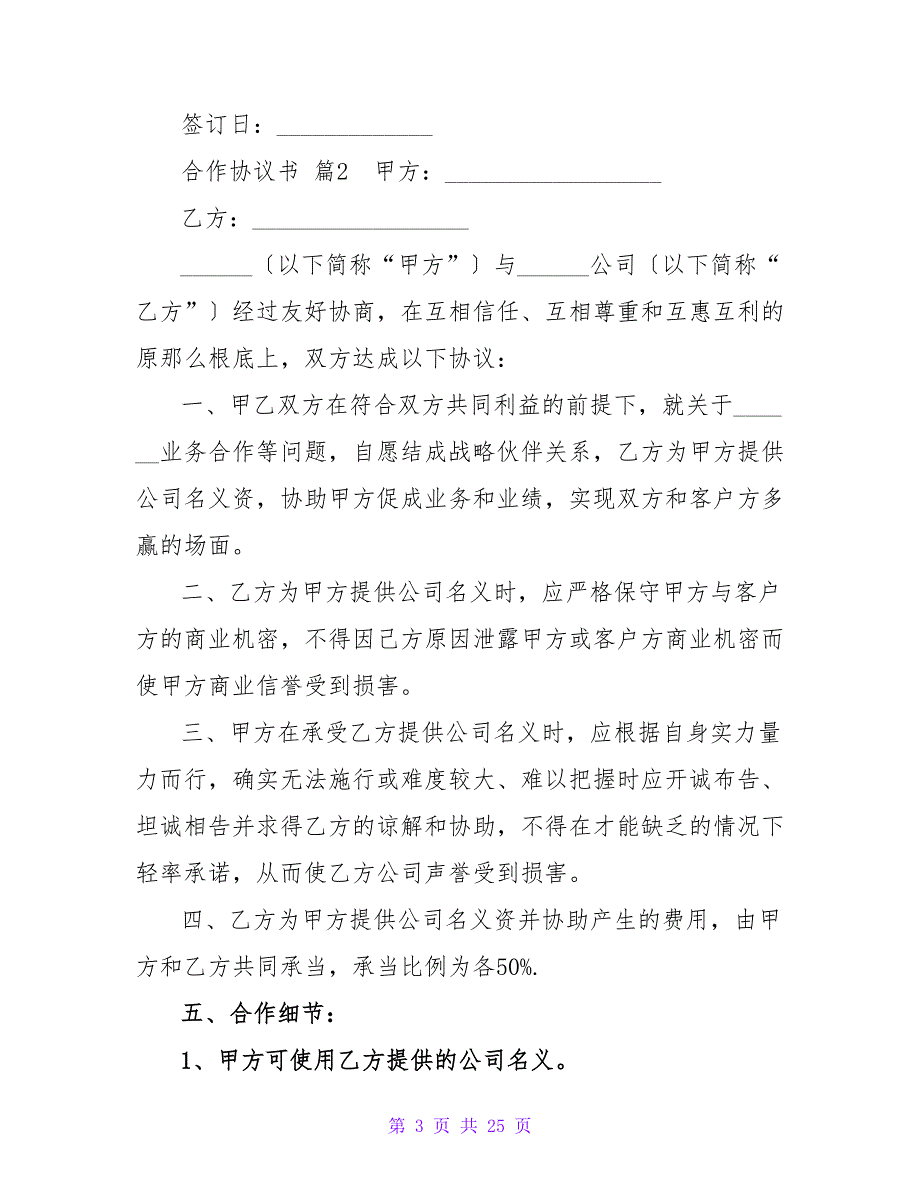 签订日：_____________
合作协议书 篇2　甲方：__________________
乙方：__________________
______〔以下简称“甲方”〕与______公司〔以下简称“
乙方”〕经过友好协商，在互相信任、互相尊重和互惠互利的
原那么根底上，双方达成以下协议：
一、甲乙双方在符合双方共同利益的前提下，就关于____
__业务合作等问题，自愿结成战略伙伴关系，乙方为甲方提供
公司名义资，协助甲方促成业务和业绩，实现双方和客户方多
赢的场面。
二、乙方为甲方提供公司名义时，应严格保守甲方与客户
方的商业机密，不得因己方原因泄露甲方或客户方商业机密而
使甲方商业信誉受到损害。
三、甲方在承受乙方提供公司名义时，应根据自身实力量
力而行，确实无法施行或难度较大、难以把握时应开诚布告、
坦诚相告并求得乙方的谅解和协助，不得在才能缺乏的情况下
轻率承诺，从而使乙方公司声誉受到损害。
四、乙方为甲方提供公司名义资并协助产生的费用，由甲
方和乙方共同承当，承当比例为各50%.
五、合作细节：
1、甲方可使用乙方提供的公司名义。
第 3 页 共 25 页